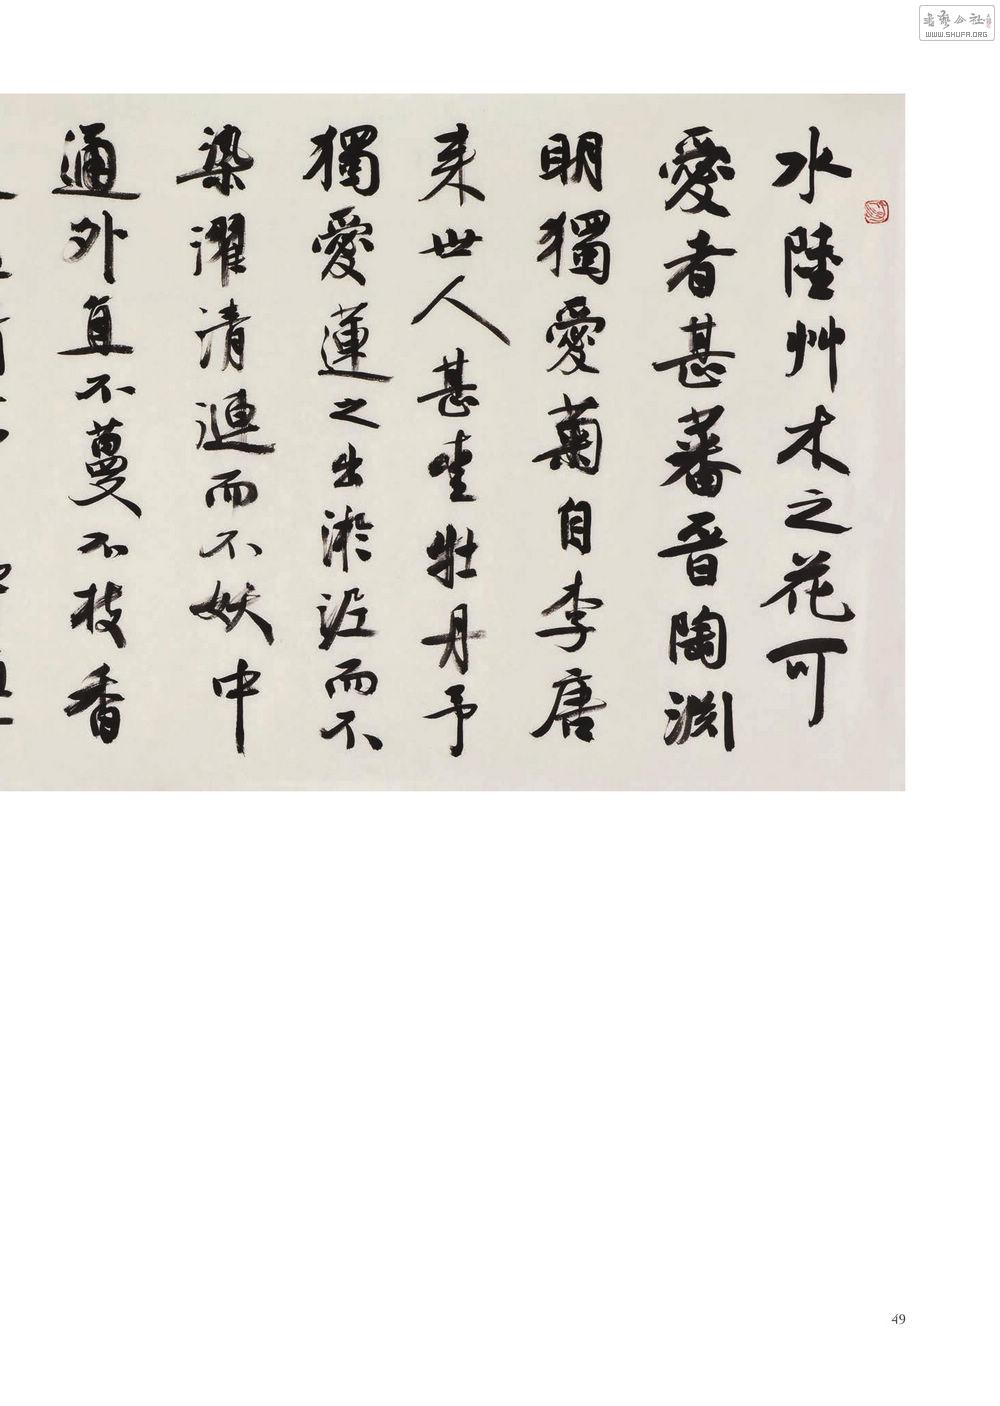 書藝公社
WWW.SHUFA.ORG
水陸艸木之花可
愛者甚蕃晋陶淵
明獨愛菊自李唐
来世人甚愛牡丹予
獨愛蓮之出淤泥而不
染濯清漣而不妖中
通外直不蔓不枝香
49